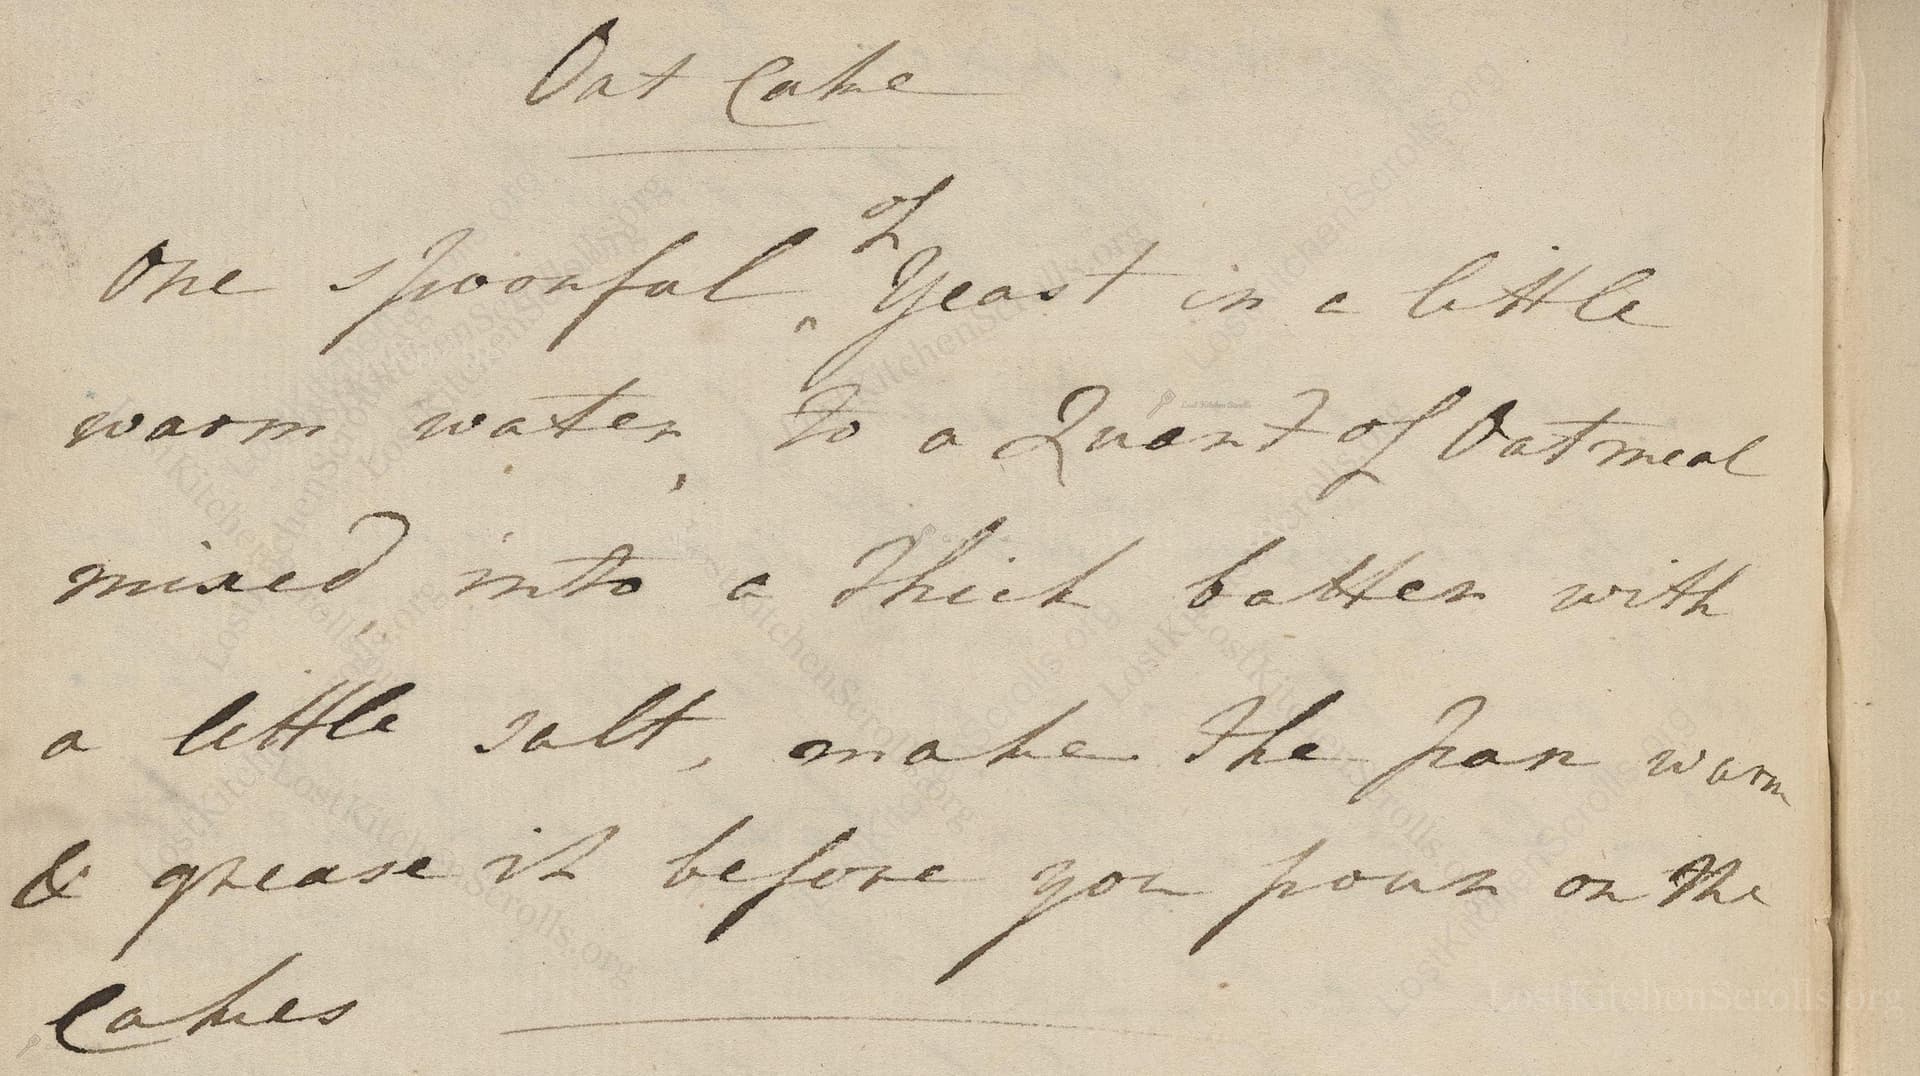 Oat Cake
One spoonful ^of Yeast in a little
warm water, to a Quart of Oatmeal
mixed, into a thick batter with
a little salt, make the pan warm
& grease it before you pour on the
Cakes
LostKitchenScrolls.org